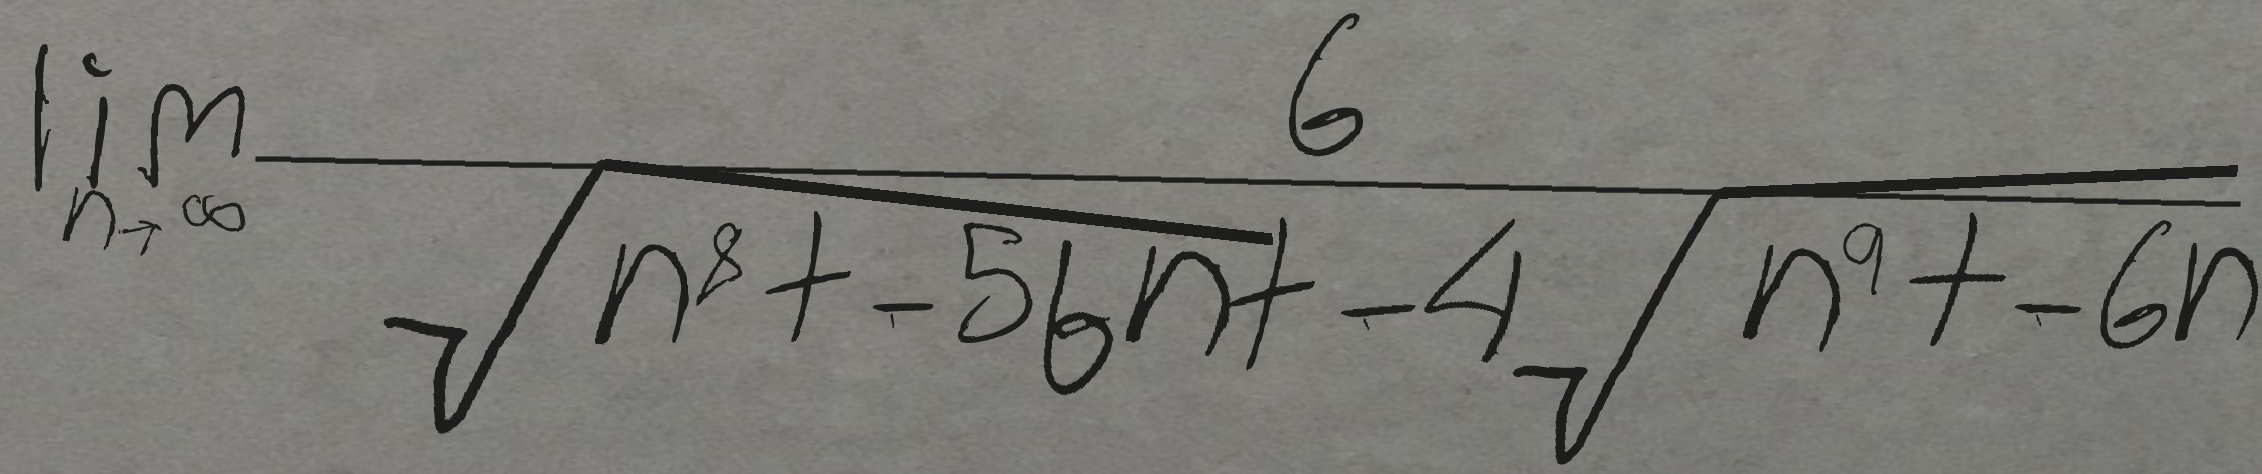 \lim_{n \to \infty} \frac{6}{\sqrt{n^8 + -56n} + -4\sqrt{n^9 + -6n}}